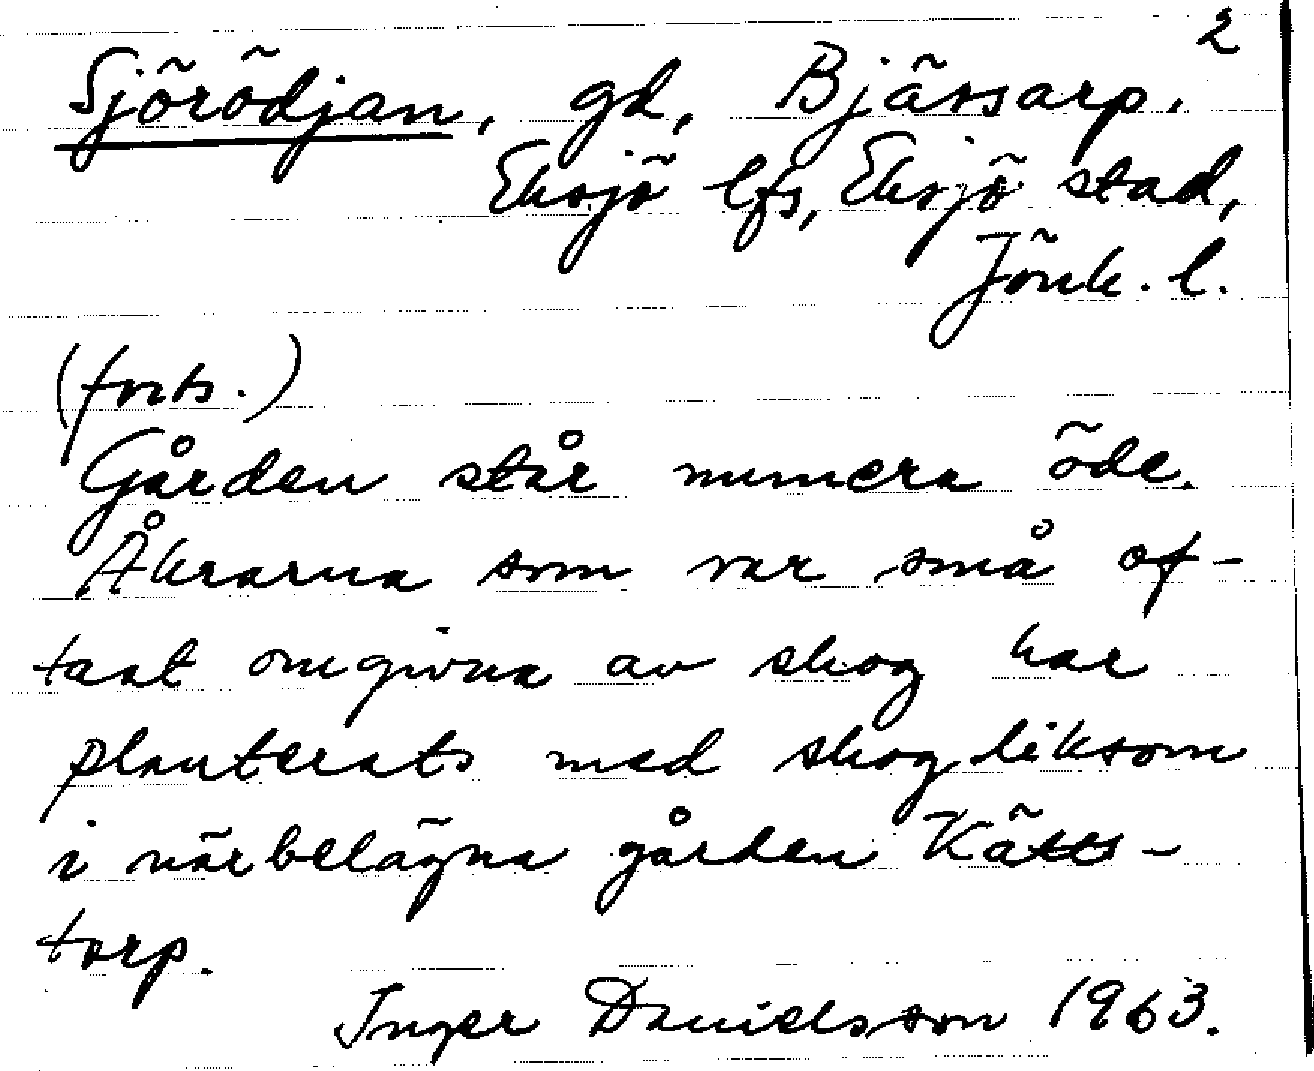 2
Sjörödjan, gd, Bjässarp.
Eksjö lfs, Eksjö stad,
Jönk. l.
(forts.)
Gården står numera öde.
Åkrarna som var små of-
tast omgivna av skog har
planterats med skog liksom
i närbelägna gården Kätts-
torp.
Inger Danielsson 1963.